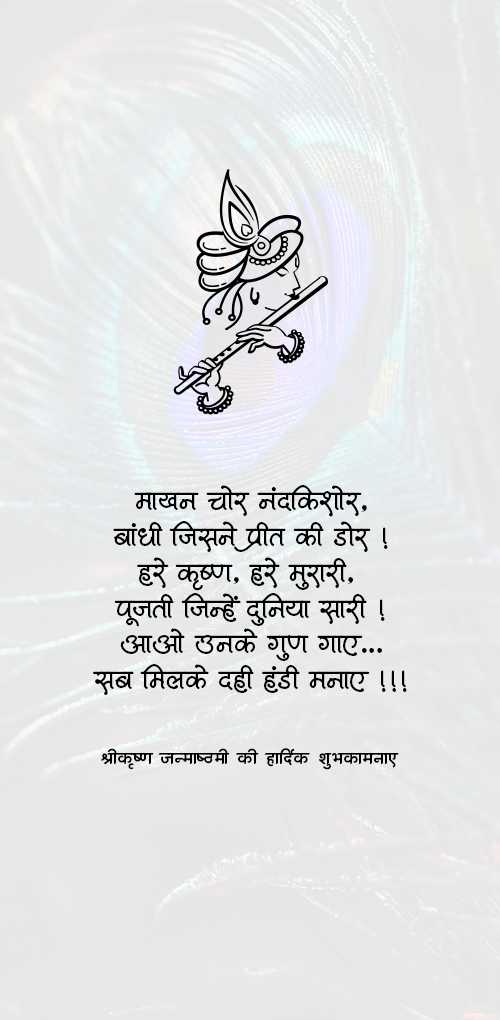 माखन चोर नंदकिशोर,
बांधी जिसने प्रीत की डोर !
हरे कृष्ण, हरे मुरारी,
पूजती जिन्हें दुनिया सारी !
आओ उनके गुण गाए...
सब मिलके दही हंडी मनाए !!!
श्रीकृष्ण जन्माष्ठमी की हार्दिक शुभकामनाए